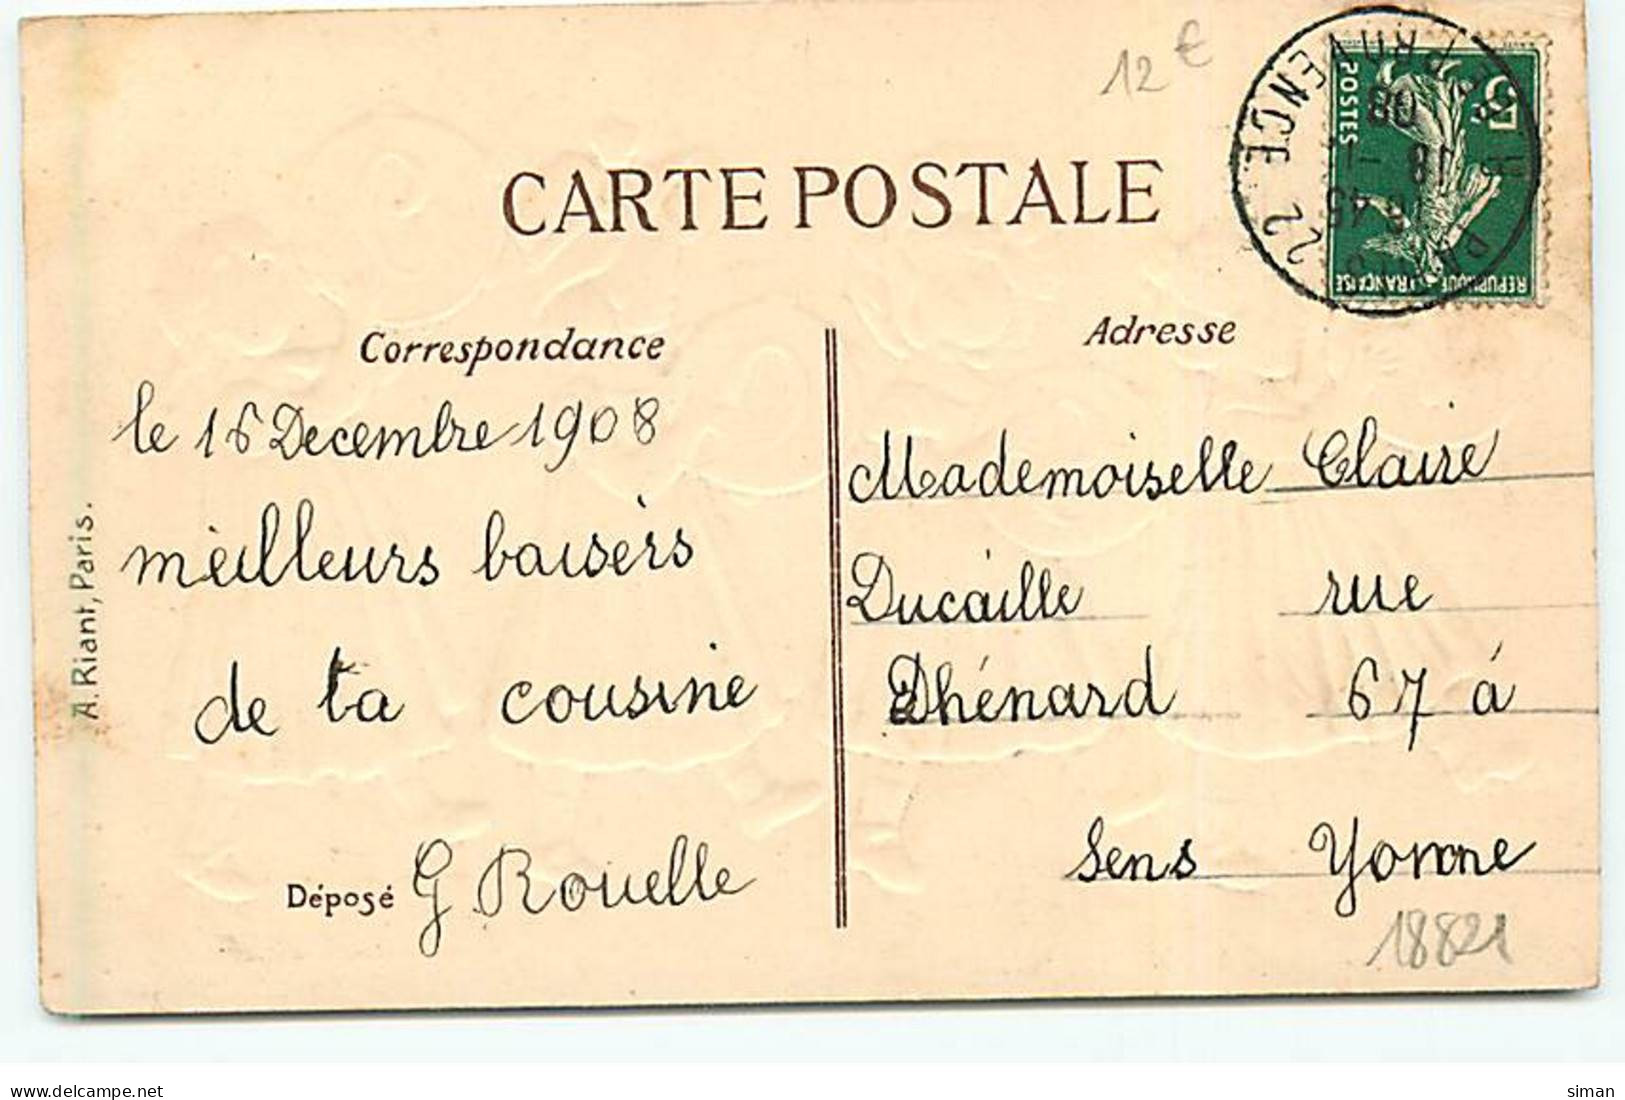 12 €
CARTE POSTALE
5c
POSTES
REPUBLIQUE FRANÇAISE
PARIS 22
R. DE PROVENCE
Correspondance
Adresse
le 16 Decembre 1908
meilleurs baisers
de ta cousine
Déposé G Rouelle
A. Riant, Paris.
Mademoiselle Claire
Ducaille rue
Dhénard 67 á
Sens Yonne
18821
delcampe.net
siman